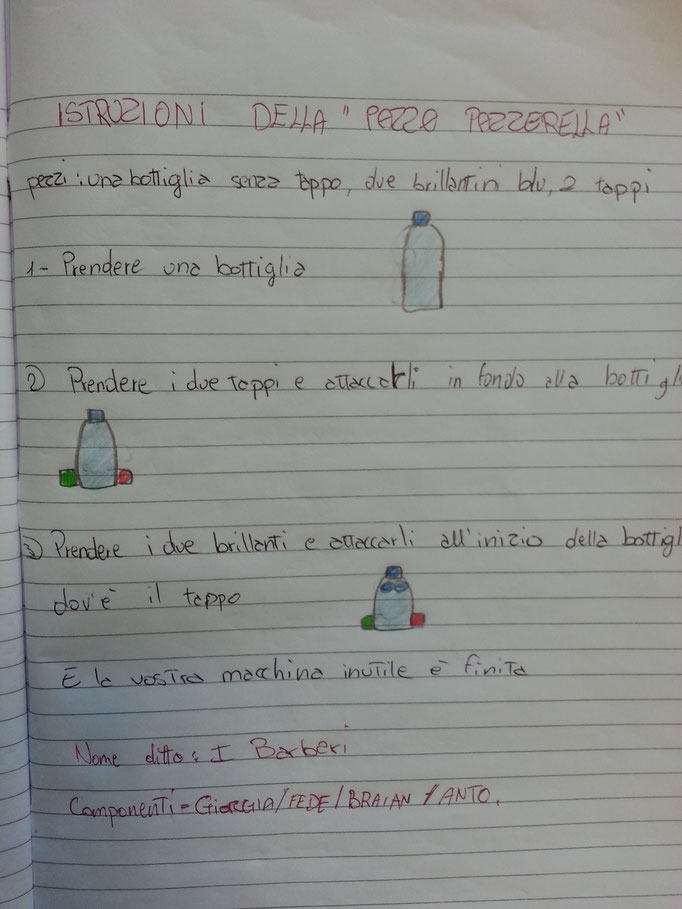 ISTRUZIONI DELLA "PAZZA PAZZERELLA"
pezzi: una bottiglia senza tappo, due brillantini blu, 2 tappi
1- Prendere una bottiglia
2) Prendere i due tappi e attaccarli in fondo alla bottigl
3) Prendere i due brillanti e attaccarli all'inizio della bottigl
dov'è il tappo
E la vostra macchina inutile è finita
Nome ditta: I Barberi
Componenti = GIORGIA/FEDE/BRAIAN/ANTO.